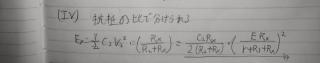 (IV) 抵抗の比で分けられる
Ex = 1/2 C₂V₂² · (Rx/(R₂+Rx)) = C₂Rx/(2(R₂+Rx)) · (E Rx/(r+R₁+Rx))²